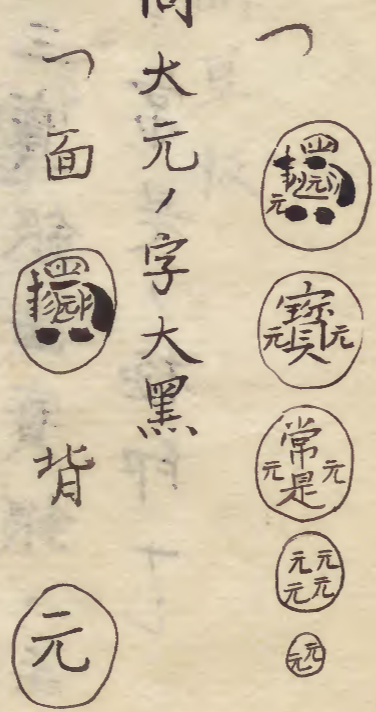 一 元 元 寳 元 元 常是 元 元 元 元 元 元 元
同大元ノ字大黒
一 面 背 元